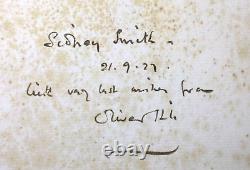 Sidney Smith.
21.9.27.
with very best wishes from
Oliver Hill